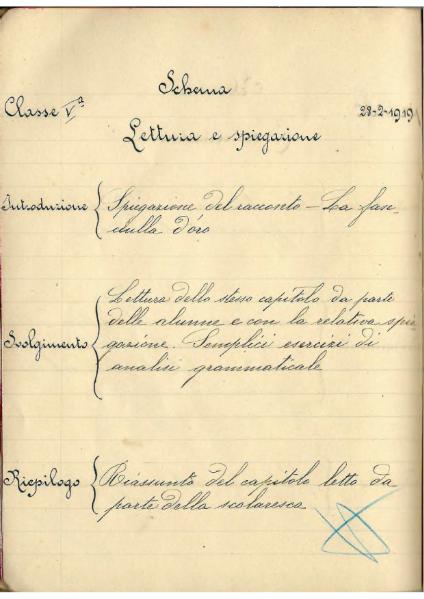 Schema
Classe Vª
28-2-1919
Lettura e spiegazione
Introduzione
Spiegazione del racconto – La fan-
ciulla d'oro
Svolgimento
Lettura dello stesso capitolo da parte
delle alunne e con la relativa spie-
gazione. Semplici esercizi di
analisi grammaticale
Riepilogo
Riassunto del capitolo letto da
parte della scolaresca